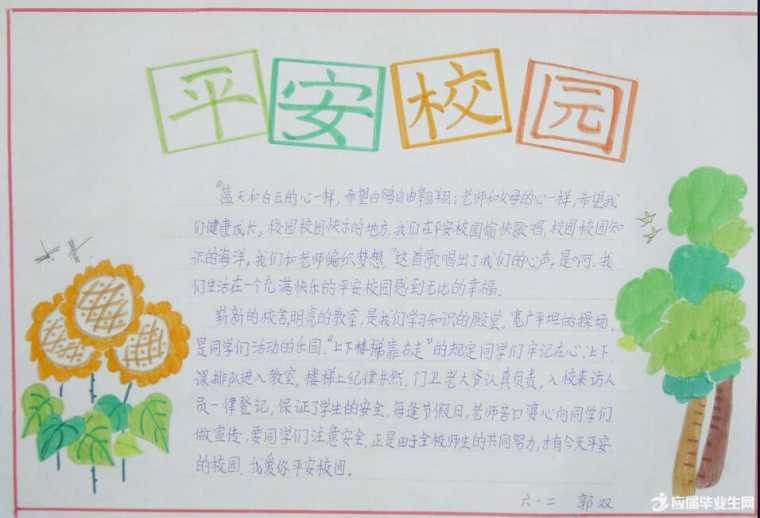 平安校园
"蓝天和白云的心一样，希望白鸽自由翱翔；老师和父母的心一样，希望我
们健康成长，校园校园快乐的地方，我们在平安校园愉快歌唱，校园校园知
识的海洋，我们和老师编织梦想。"这首歌唱出了我们的心声，是啊，我
们生活在一个充满快乐的平安校园感到无比的幸福。
崭新的校舍，明亮的教室，是我们学习知识的殿堂，宽广平坦的操场，
是同学们活动的乐园。"上下楼梯靠右走"的规定同学们牢记在心，上下
课排队进入教室，楼梯上纪律井然，门卫老大爷认真负责，入校来访人
员一律登记，保证了学生的安全，每逢节假日，老师苦口婆心向同学们
做宣传，要同学们注意安全。正是由于全校师生的共同努力，才有今天平安
的校园。我爱你平安校园。
六·二 郭双
应届毕业生网